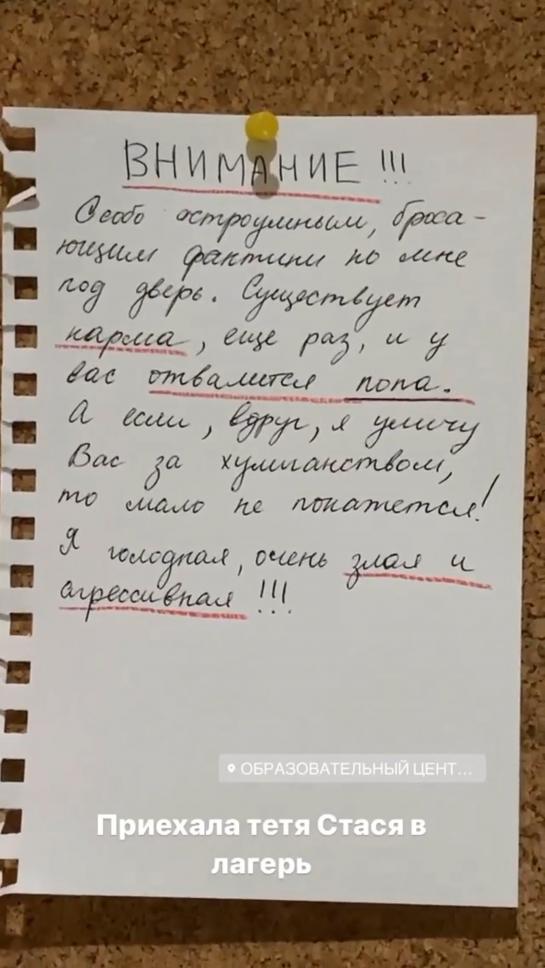 ВНИМАНИЕ !!!
Особо остроумным, броса-
ющим фантики ко мне
под дверь. Существует
карма, еще раз, и у
вас отвалится попа.
А если, вдруг, я уличу
Вас за хулиганством,
то мало не покажется!
Я голодная, очень злая и
агрессивная !!!
ОБРАЗОВАТЕЛЬНЫЙ ЦЕНТ...
Приехала тетя Стася в
лагерь